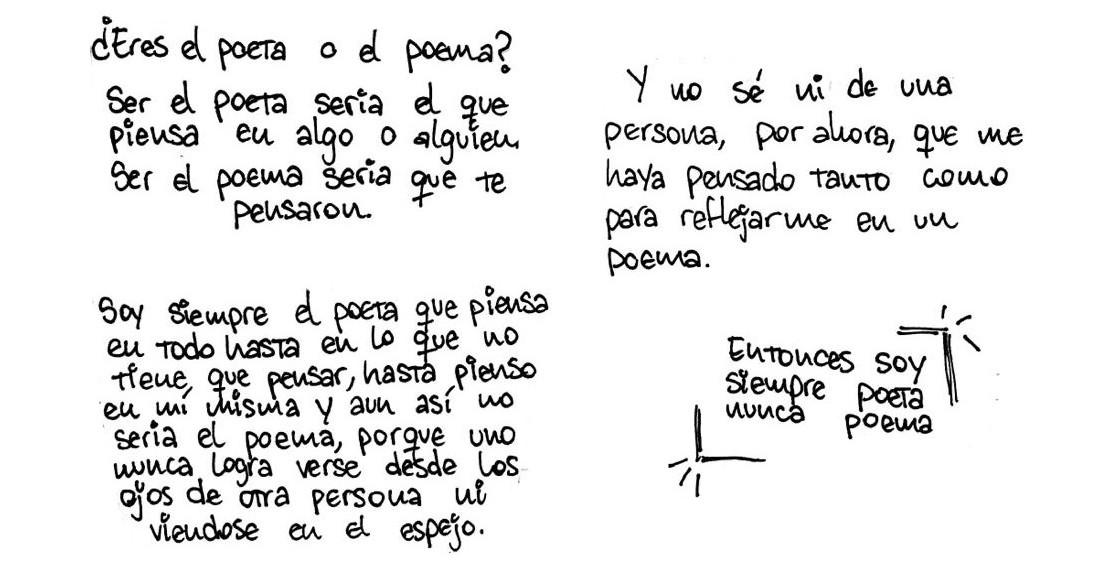 ¿Eres el poeta o el poema?
Ser el poeta seria el que
piensa en algo o alguien.
Ser el poema seria que te
pensaron.
Soy siempre el poeta que piensa
en todo hasta en lo que no
tiene que pensar, hasta pienso
en mí misma y aun así no
seria el poema, porque uno
nunca logra verse desde los
ojos de otra persona ni
viendose en el espejo.
Y no sé ni de una
persona, por ahora, que me
haya pensado tanto como
para reflejarme en un
poema.
Entonces soy
siempre poeta
nunca poema